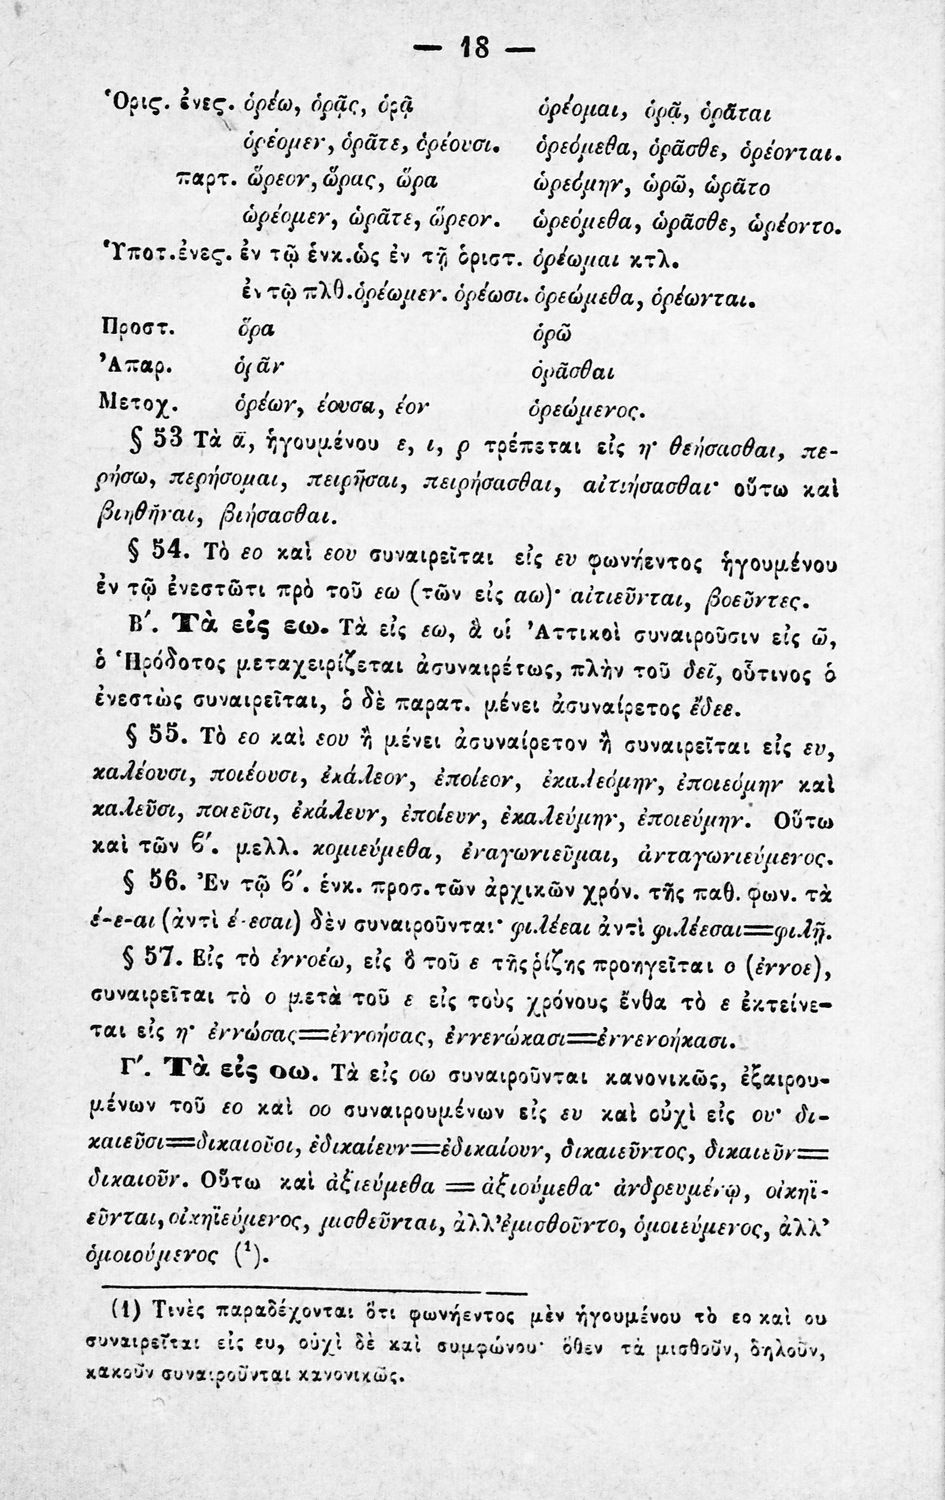 — 18 —
Ὁρις. ἐνες. ὁρέω, ὁρᾷς, ὁρᾷ ὁρέομαι, ὁρᾷ, ὁρᾶται
ὁρέομεν, ὁρᾶτε, ὁρέουσι. ὁρεόμεθα, ὁρᾶσθε, ὁρέονται.
παρτ. ὥρεον, ὥρας, ὥρα ὡρεόμην, ὡρῶ, ὡρᾶτο
ὡρέομεν, ὡρᾶτε, ὥρεον. ὡρεόμεθα, ὡρᾶσθε, ὡρέοντο.
Ὑποτ.ἐνες. ἐν τῷ ἑνκ.ὡς ἐν τῇ ὁριστ. ὁρέωμαι κτλ.
ἐν τῷ πλθ.ὁρέωμεν. ὁρέωσι. ὁρεώμεθα, ὁρέωνται.
Προστ. ὅρα ὁρῶ
Ἀπαρ. ὁρᾶν ὁρᾶσθαι
Μετοχ. ὁρέων, έουσα, έον ὁρεώμενος.
§ 53 Τὰ ᾱ, ἡγουμένου ε, ι, ρ τρέπεται εἰς η· θεήσασθαι, πε-
ρήσω, περήσομαι, πειρῆσαι, πειρήσασθαι, αἰτιήσασθαι· οὕτω καὶ
βιηθῆναι, βιήσασθαι.
§ 54. Τὸ εο καὶ εου συναιρεῖται εἰς ευ φωνήεντος ἡγουμένου
ἐν τῷ ἐνεστῶτι πρὸ τοῦ εω (τῶν εἰς αω)· αἰτιεῦνται, βοεῦντες.
Β΄. Τὰ εἰς εω. Τὰ εἰς εω, ἃ οἱ Ἀττικοὶ συναιροῦσιν εἰς ῶ,
ὁ Ἡρόδοτος μεταχειρίζεται ἀσυναιρέτως, πλὴν τοῦ δεῖ, οὗτινος ὁ
ἐνεστὼς συναιρεῖται, ὁ δὲ παρατ. μένει ἀσυναίρετος ἔδεε.
§ 55. Τὸ εο καὶ εου ἢ μένει ἀσυναίρετον ἢ συναιρεῖται εἰς ευ,
καλέουσι, ποιέουσι, ἐκάλεον, ἐποίεον, ἐκαλεόμην, ἐποιεόμην καὶ
καλεῦσι, ποιεῦσι, ἐκάλευν, ἐποίευν, ἐκαλεύμην, ἐποιεύμην. Οὕτω
καὶ τῶν ϐ΄. μελλ. κομιεύμεθα, ἐναγωνιεῦμαι, ἀνταγωνιεύμενος.
§ 56. Ἐν τῷ ϐ΄. ἑνκ. προσ.τῶν ἀρχικῶν χρόν. τῆς παθ. φων. τὰ
έ-ε-αι (ἀντὶ έ-εσαι) δὲν συναιροῦνται· φιλέεαι ἀντὶ φιλέεσαι=φιλῇ.
§ 57. Εἰς τὸ ἐννοέω, εἰς ὃ τοῦ ε τῆς ῥίζης προηγεῖται ο (ἐννοε),
συναιρεῖται τὸ ο μετὰ τοῦ ε εἰς τοὺς χρόνους ἔνθα τὸ ε ἐκτείνε-
ται εἰς η· ἐννώσας=ἐννοήσας, ἐννενώκασι=ἐννενοήκασι.
Γ΄. Τὰ εἰς οω. Τὰ εἰς οω συναιροῦνται κανονικῶς, ἐξαιρου-
μένων τοῦ εο καὶ οο συναιρουμένων εἰς ευ καὶ οὐχὶ εἰς ου· δι-
καιεῦσι=δικαιοῦσι, ἐδικαίευν=ἐδικαίουν, δικαιεῦντος, δικαιεῦν=
δικαιοῦν. Οὕτω καὶ ἀξιεύμεθα = ἀξιούμεθα· ἀνδρευμένῳ, οἰκηϊ-
εῦνται, οἰκηϊεύμενος, μισθεῦνται, ἀλλ' ἐμισθοῦντο, ὁμοιεύμενος, ἀλλ'
ὁμοιούμενος (¹).
(1) Τινὲς παραδέχονται ὅτι φωνήεντος μὲν ἡγουμένου τὸ εο καὶ ου
συναιρεῖται εἰς ευ, οὐχὶ δὲ καὶ συμφώνου· ὅθεν τὰ μισθοῦν, δηλοῦν,
κακοῦν συναιροῦνται κανονικῶς.